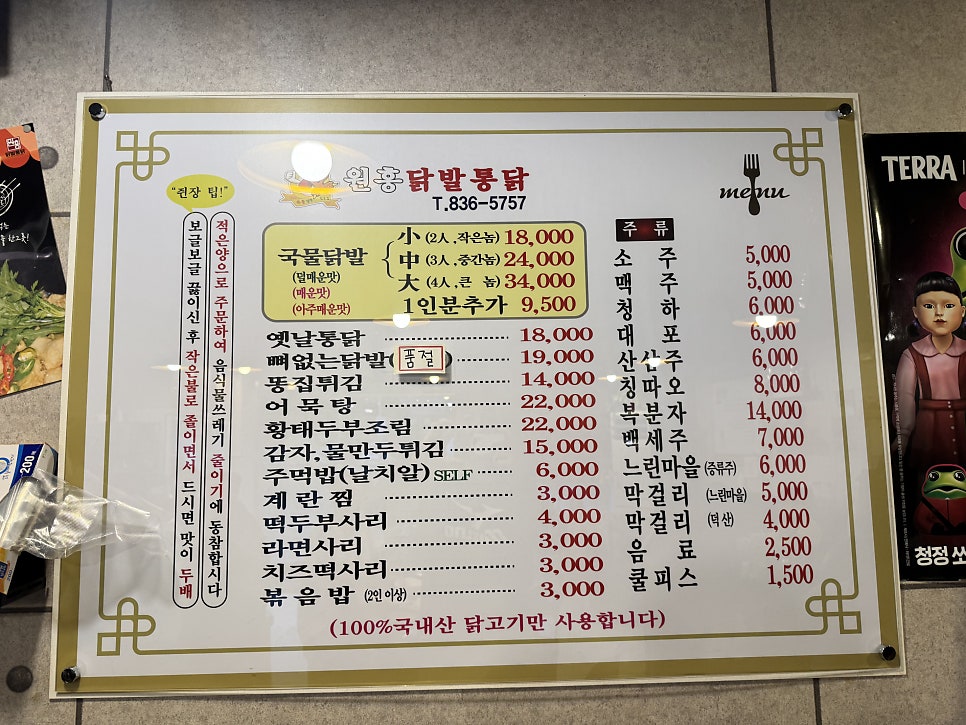 원흥닭발통닭
T.836-5757
menu
"쥔장 팁!"
보글보글 끓이신 후 작은불로 졸이면서 드시면 맛이 두배
적은양으로 주문하여 음식물쓰레기 줄이기에 동참합시다
국물닭발
(덜매운맛)
(매운맛)
(아주매운맛)
小 (2人, 작은놈) 18,000
中 (3人, 중간놈) 24,000
大 (4人, 큰 놈) 34,000
1인분추가 9,500
옛날통닭 18,000
뼈없는닭발( 품절 ) 19,000
똥집튀김 14,000
어묵탕 22,000
황태두부조림 22,000
감자,물만두튀김 15,000
주먹밥(날치알)SELF 6,000
계란찜 3,000
떡두부사리 4,000
라면사리 3,000
치즈떡사리 3,000
볶음밥 (2인 이상) 3,000
주 류
소 주 5,000
맥 주 5,000
청 하 6,000
대 포 6,000
산삼주 6,000
칭따오 8,000
복분자 14,000
백세주 7,000
느린마을(증류주) 6,000
막걸리 (느린마을) 5,000
막걸리 (덕산) 4,000
음 료 2,500
쿨피스 1,500
(100%국내산 닭고기만 사용합니다)
TERRA
청정 쏘
200